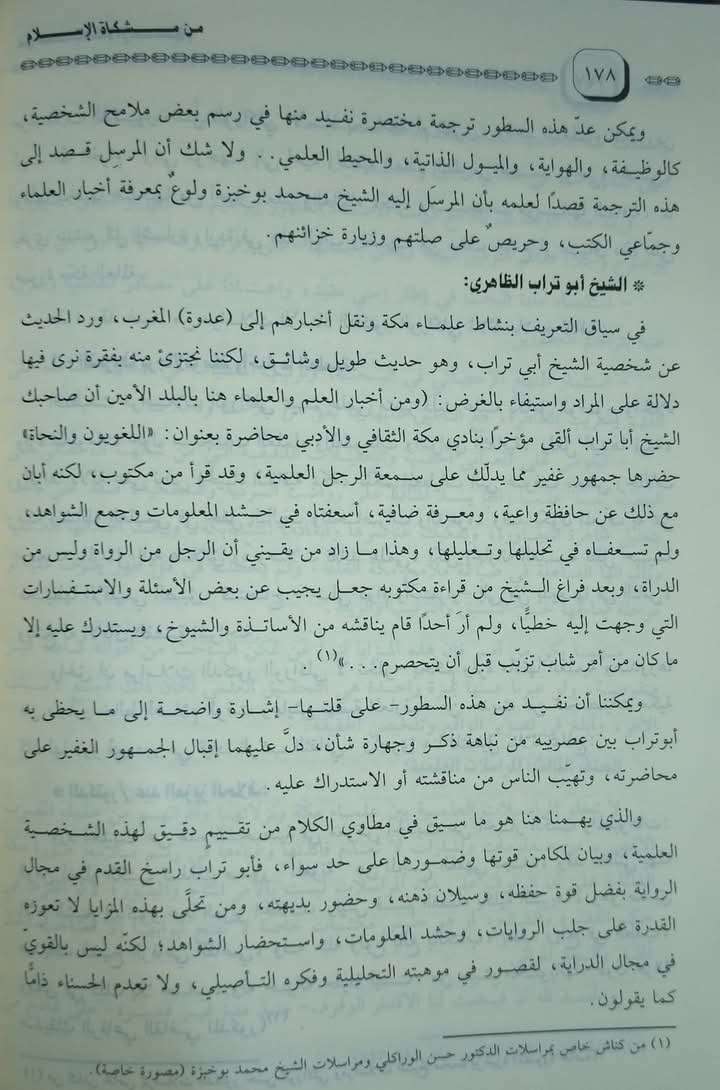 من مشكاة الإسلام
١٧٨
ويمكن عدّ هذه السطور ترجمة مختصرة نفيد منها في رسم بعض ملامح الشخصية،
كالوظيفة، والهواية، والميول الذاتية، والمحيط العلمي.. ولا شك أن المرسِل قصد إلى
هذه الترجمة قصدًا لعلمه بأن المرسَل إليه الشيخ محمد بوخبزة ولوعٌ بمعرفة أخبار العلماء
وجمّاعي الكتب، وحريصٌ على صلتهم وزيارة خزائنهم.
* الشيخ أبو تراب الظاهري:
في سياق التعريف بنشاط علماء مكة ونقل أخبارهم إلى (عدوة) المغرب، ورد الحديث
عن شخصية الشيخ أبي تراب، وهو حديث طويل وشائق، لكننا نجتزئ منه بفقرة نرى فيها
دلالة على المراد واستيفاء بالغرض: (ومن أخبار العلم والعلماء هنا بالبلد الأمين أن صاحبك
الشيخ أبا تراب ألقى مؤخرًا بنادي مكة الثقافي والأدبي محاضرة بعنوان: «اللغويون والنحاة»
حضرها جمهور غفير مما يدلّك على سمعة الرجل العلمية، وقد قرأ من مكتوب، لكنه أبان
مع ذلك عن حافظة واعية، ومعرفة ضافية، أسعفتاه في حشد المعلومات وجمع الشواهد،
ولم تسعفاه في تحليلها وتعليلها، وهذا ما زاد من يقيني أن الرجل من الرواة وليس من
الدراة، وبعد فراغ الشيخ من قراءة مكتوبه جعل يجيب عن بعض الأسئلة والاستفسارات
التي وجهت إليه خطيًّا، ولم أرَ أحدًا قام يناقشه من الأساتذة والشيوخ، ويستدرك عليه إلا
ما كان من أمر شاب تزبّب قبل أن يتحصرم...»(١).
ويمكننا أن نفيد من هذه السطور- على قلتها- إشارة واضحة إلى ما يحظى به
أبوتراب بين عصرييه من نباهة ذكر وجهارة شأن، دلَّ عليهما إقبال الجمهور الغفير على
محاضرته، وتهيّب الناس من مناقشته أو الاستدراك عليه.
والذي يهمنا هنا هو ما سيق في مطاوي الكلام من تقييمٍ دقيق لهذه الشخصية
العلمية، وبيان لمكامن قوتها وضمورها على حد سواء، فأبو تراب راسخ القدم في مجال
الرواية بفضل قوة حفظه، وسيلان ذهنه، وحضور بديهته، ومن تحلَّى بهذه المزايا لا تعوزه
القدرة على جلب الروايات، وحشد المعلومات، واستحضار الشواهد؛ لكنّه ليس بالقويّ
في مجال الدراية، لقصور في موهبته التحليلية وفكره التأصيلي، ولا تعدم الحسناء ذامًّا
كما يقولون.
(١) من كناش خاص بمراسلات الدكتور حسن الوراكلي ومراسلات الشيخ محمد بوخبزة (مصورة خاصة).